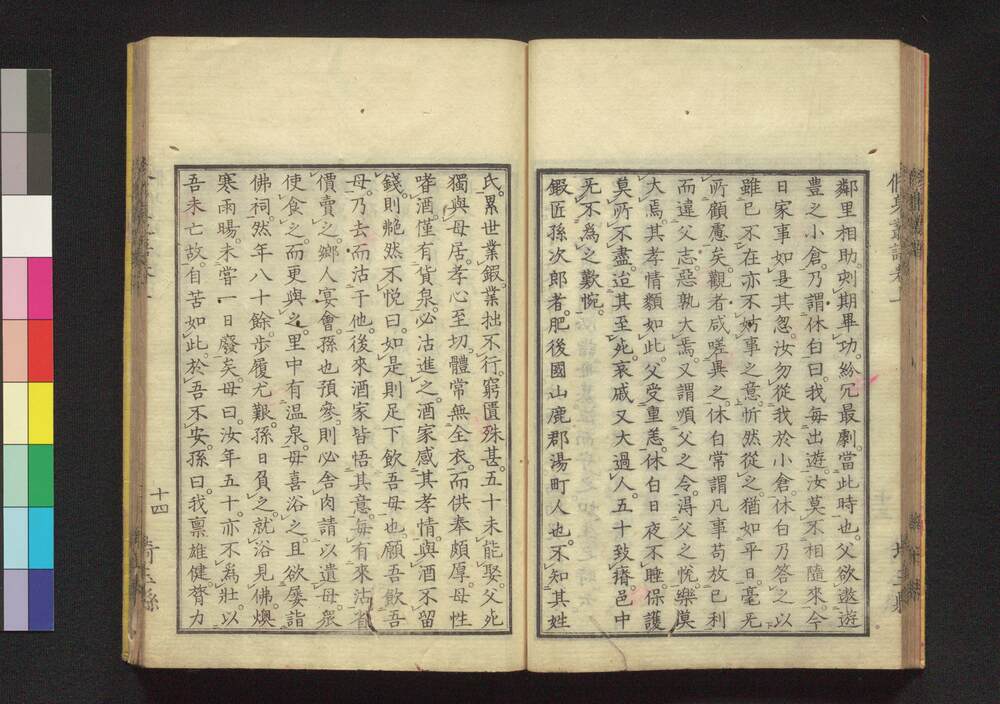 鄰里相助。刻期畢功。紛冗最劇。當此時也。父欲遨遊
豊之小倉。乃謂休白曰。我每出遊。汝莫不相隨來。今
日家事如是其忽。汝勿從我於小倉。休白乃答之以
雖已不在亦不妨事之意。忻然從之。猶如平日。毫无
所顧慮矣。觀者咸嗟異之。休白常謂凡事苟放己利
而違父志。惡孰大焉。又謂順父之令。得父之悅。樂莫
大焉。其孝情類如此。父受重恙。休白日夜不睡。保護
莫所不盡。迨其至死。哀戚又大過人。五十致瘠。邑中
无不為之歎惋。
鍜匠孫次郎者。肥後國山鹿郡湯町人也。不知其姓
氏。累世業鍜。業拙不行。窮匱殊甚。五十未能娶。父死
獨與母居。孝心至切。體常無全衣。而供奉頗厚。母性
嗜酒。僅有貨泉。必沽進之。酒家感其孝情。與酒不留
錢。則艴然不悅曰。如是則足下飲吾母也。願吾飲吾
母。乃去而沽于他。後來酒家皆悟其意。每有來沽省
價賣之。鄉人宴會。孫也預參。則必舍肉請以遺母。衆
使食之。而更與之。里中有溫泉。母喜浴之。且欲屡詣
佛祠。然年八十餘。步履尤艱。孫日負之。就浴見佛。燠
寒雨暘。未嘗一日廢矣。母曰。汝年五十。亦不為壯。以
吾未亡故。自苦如此。於吾不安。孫曰。我禀雄健膂力
十四